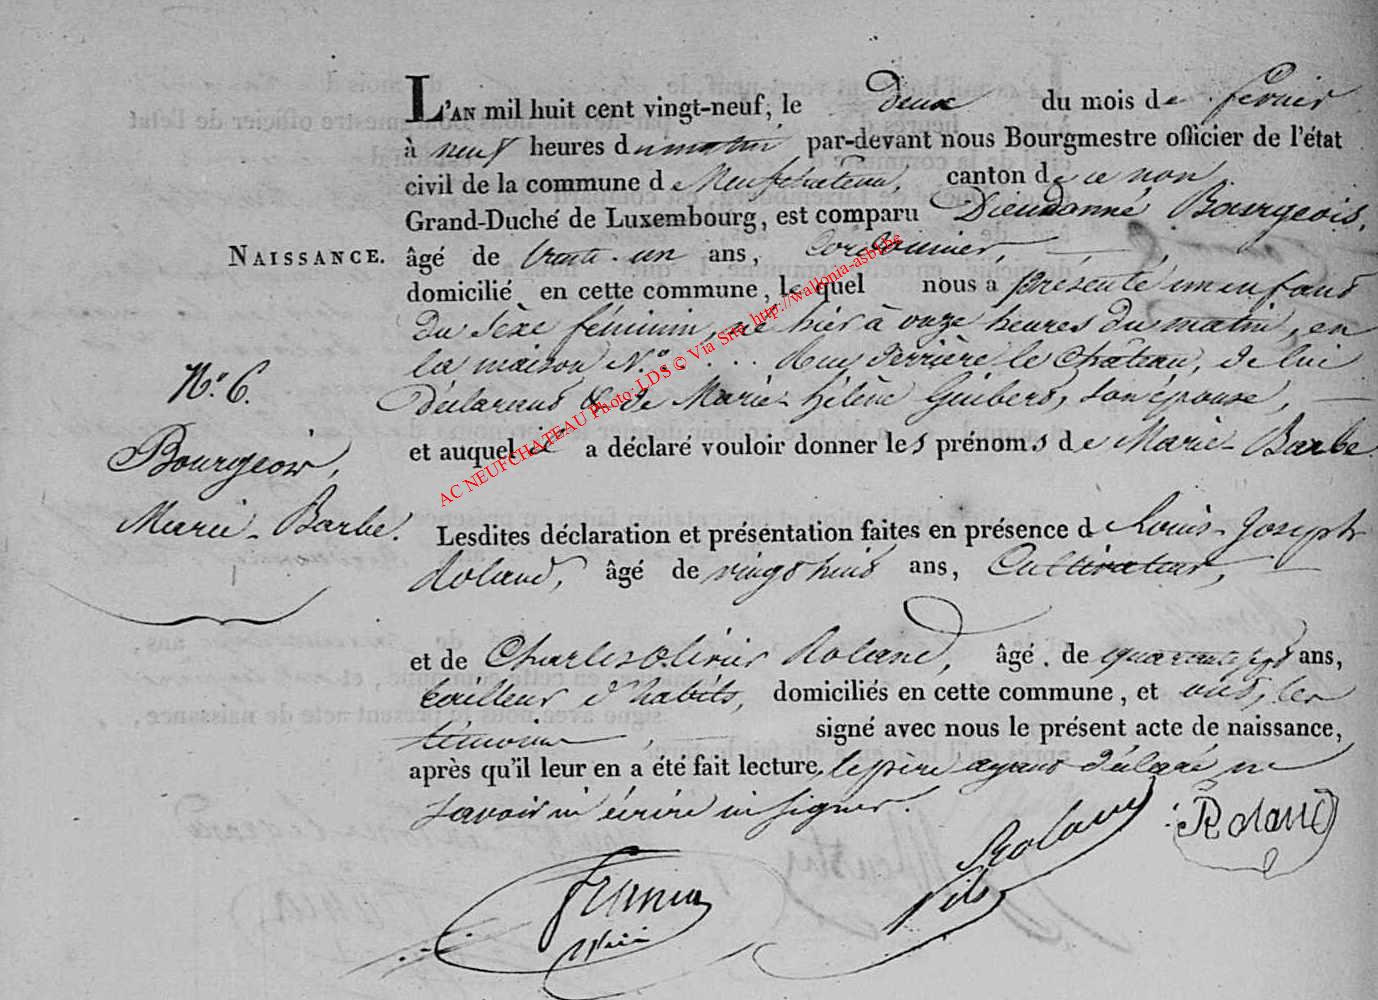 L'AN mil huit cent vingt-neuf, le deux du mois de fevrier
à neuf heures du matin par-devant nous Bourgmestre officier de l'état
civil de la commune de Neufchateau, canton de ce nom
Grand-Duché de Luxembourg, est comparu Dieudonné Bourgeois,
NAISSANCE.
âgé de trente-un ans, Cordonnier,
domicilié en cette commune, lequel nous a présenté un enfant
du sèxe féminin, né hier à onze heures du matin, en
la maison N.° . . . . Rue derrière le Château, de lui
N.° 6.
déclarant & de Marie-hélène Guibert, son épouse,
et auquel il a déclaré vouloir donner les prénoms de Marie-Barbe
Bourgeois,
Marie-Barbe.
Lesdites déclaration et présentation faites en présence d Louis-Joseph
Roland, âgé de vingt huit ans, Cultivateur,
et de Charles olivier Roland, âgé de ans,
tailleur d'habits, domiciliés en cette commune, et ont, les
témoins, signé avec nous le présent acte de naissance,
après qu'il leur en a été fait lecture, le père ayant déclaré ne
savoir ni écrire ni signer.
Roland
Roland
fils
AC NEUFCHATEAU Photo: LDS © Via Site http://wallonia-asbl.be